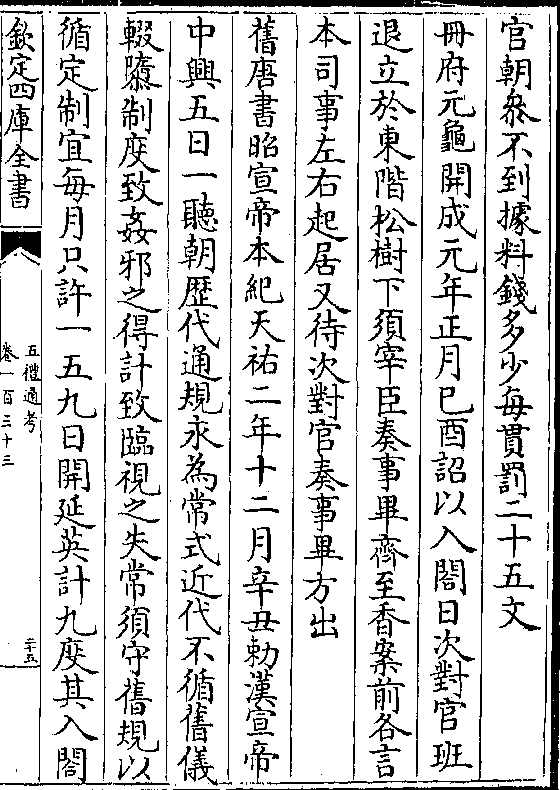 官朝叅不到據料錢多少每貫罰二十五文
冊府元龜開成元年正月巳酉詔以入閤日次對官班
退立於東階松樹下須宰臣奏事畢齊至香案前各言
本司事左右起居又待次對官奏事畢方出
舊唐書昭宣帝本紀天祐二年十二月辛丑勅漢宣帝
中興五日一聽朝歴代通規永為常式近代不循舊儀
輟隳制度致姦邪之得計致臨視之失常須守舊規以
循定制宜每月只許一五九日開延英計九度其入閤
欽定四庫全書
五禮通考
卷一百三十三
二十五